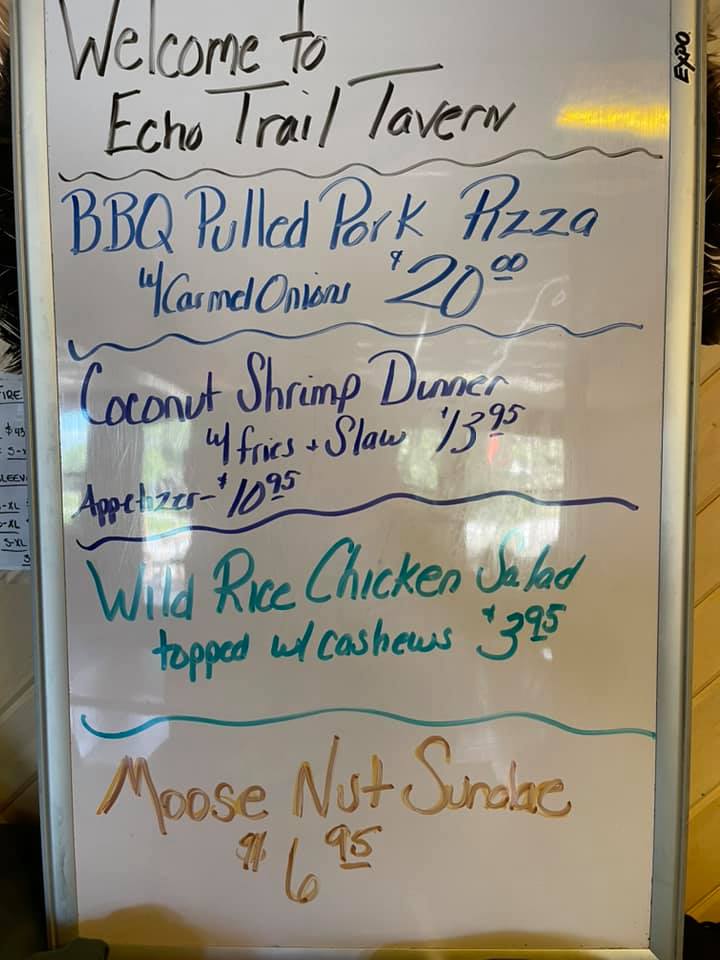 Welcome to
Echo Trail Tavern
EXPO
BBQ Pulled Pork Pizza
w/ Carmel Onions $20.00
Coconut Shrimp Dinner
w/ fries + Slaw $13.95
Appetizer - $10.95
Wild Rice Chicken Salad
topped w/ cashews $3.95
Moose Nut Sundae
$6.95
IRE
$43
S-X
LEEV
-XL
-XL
S-XL